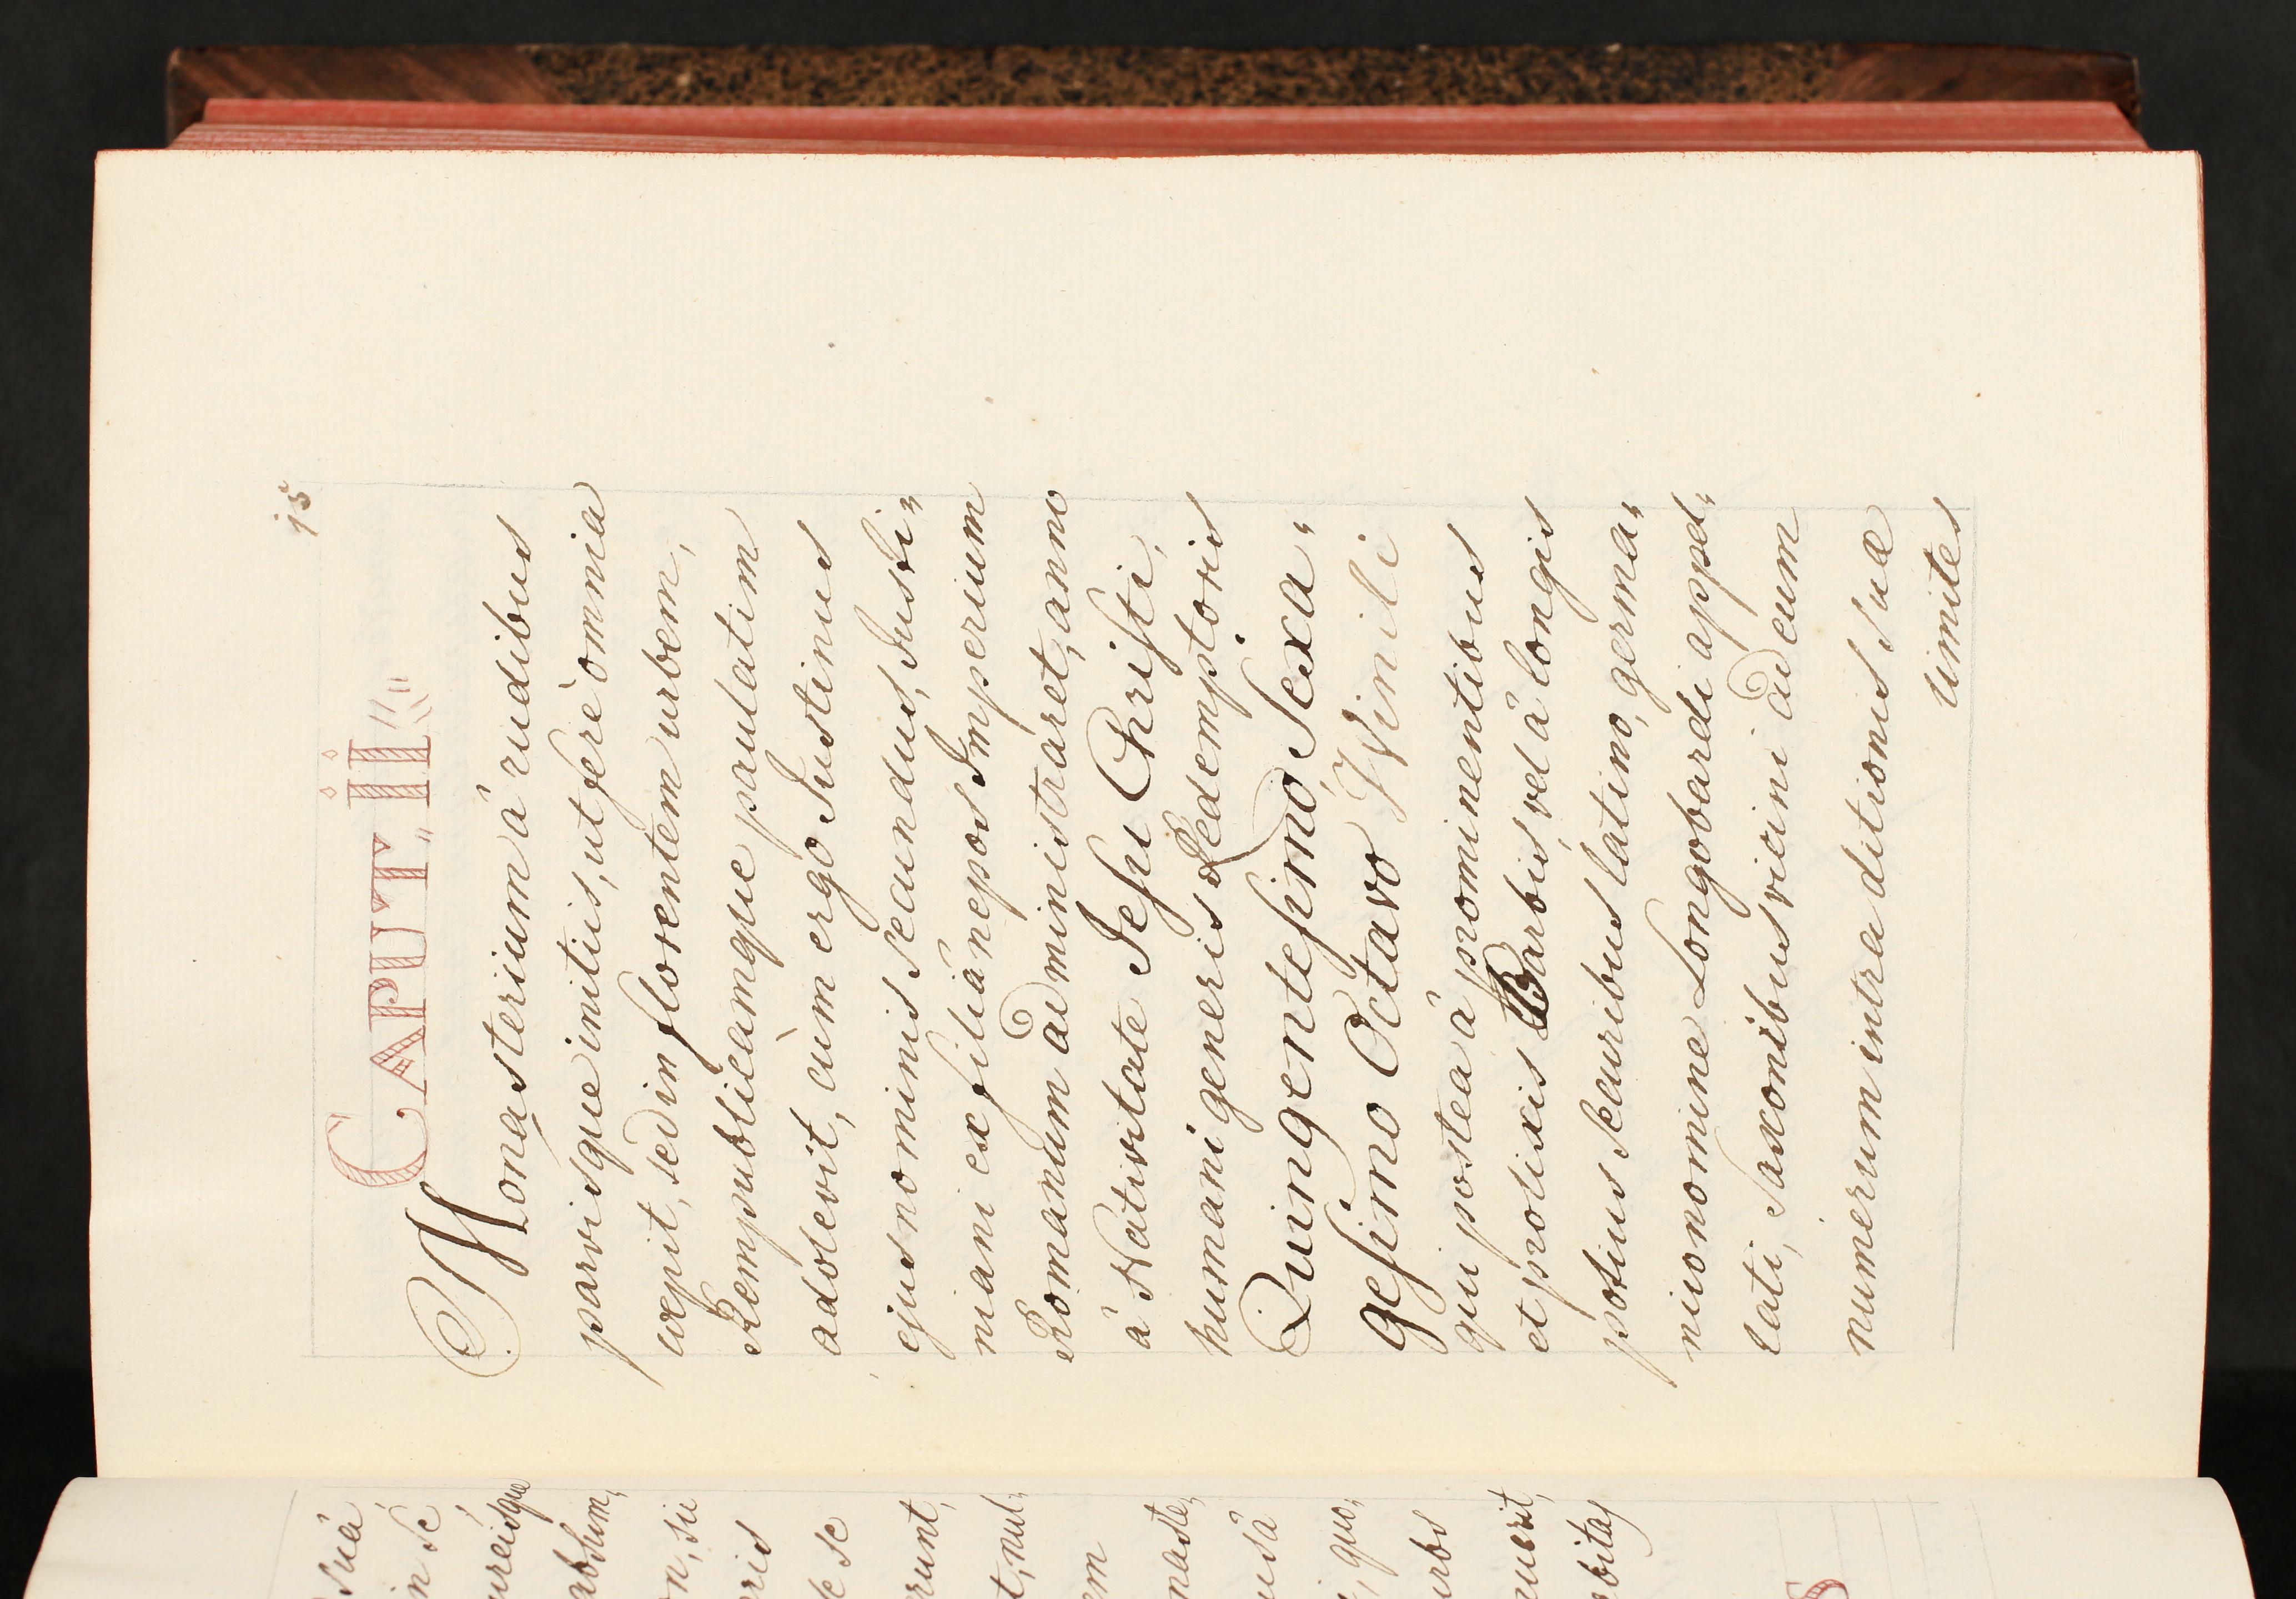 15
CAPUT. II.
Monasterium â rudibus
parvisque initiis, ut ferè omnia
cœpit, sed in florentem urbem,
Rempublicamque paulatim
adolevit, cùm ergo Justinus
ejus nominis secundus, Justi„
niani ex filiâ nepos Imperium
Romanum administraret, anno
â Nativitate Jesu Christi,
humani generis Redemptoris
Quingentesimo Sexa„
gesimo Octavo Winili
qui postea â prominentibus
et prolixis Barbis, vel â longis
potius securibus latino, germa„
nico nomine Longobardi appel„
lati, Saxonibus vicini ad eum
numerum intra ditionis suæ
limites
suâ
in se,
absum„
erid
se se
runt,
t, nul„
em
naste„
usâ
, quo„
urbs
bitas
S